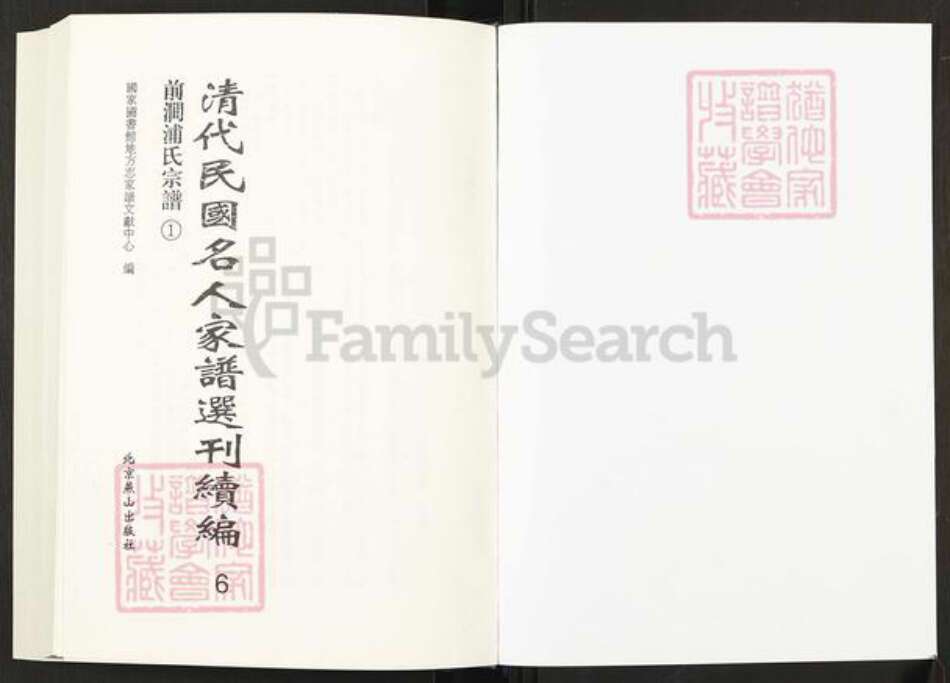 猶他家
譜學會
收藏
清代民國名人家譜選刊續編 6
前澗浦氏宗譜 ①
國家圖書館地方志家譜文獻中心 編
北京燕山出版社
猶他家
譜學會
收藏
FamilySearch